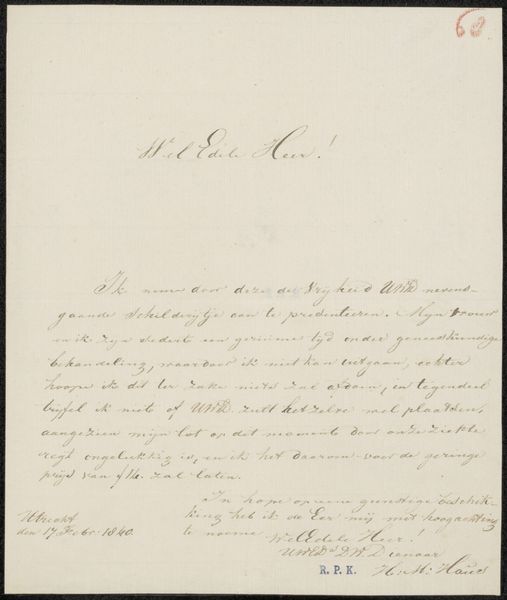 Wel Edele Heer!
Ik neem door deze de vrijheid UWEd nevens-
gaande Schilderijtje aan te presenteeren. Mijn vrouw
en ik zijn sedert een geruime tijd onder geneeskundige
behandeling, waardoor ik niet kan uitgaan, echter
hoope ik dit ter zake niets zal afdoen, in tegendeel
twijfel ik niets of UWEd zult hetzelve wel plaatsen,
aangezien mijn lot op dit moment door onze ziekte
regt ongelukkig is, en ik het daarom voor de geringe
prijs van zal laten.
In hope op eene gunstige beschik-
king heb ik de Eer mij met hoogachting
te noeme
Wel Edele Heer!
UWEd DW Dienaar
Utrecht
den 17 Febr. 1840.
R. P. K.